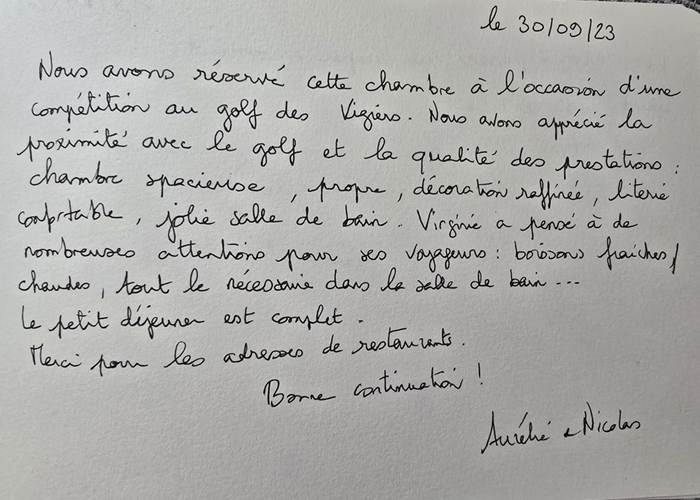 le 30/09/23
Nous avons réservé cette chambre à l'occasion d'une
compétition au golf des Vigiers. Nous avons apprécié la
proximité avec le golf et la qualité des prestations :
chambre spacieuse, propre, décoration raffinée, literie
confortable, jolie salle de bain. Virginie a pensé à de
nombreuses attentions pour ses voyageurs : boissons fraîches/
chaudes, tout le nécessaire dans la salle de bain ...
Le petit déjeuner est complet.
Merci pour les adresses de restaurants.
Bonne continuation !
Aurélie & Nicolas